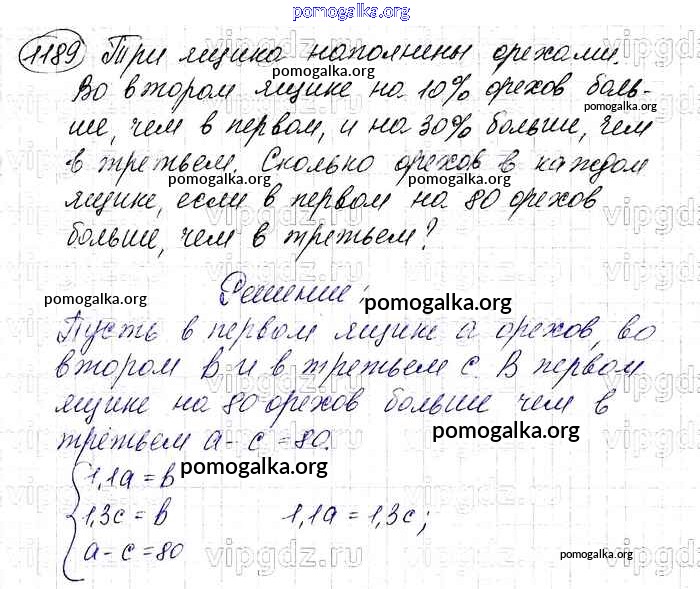 pomogalka.org
1189 Три ящика наполнены орехами.
pomogalka.org
Во втором ящике на 10% орехов боль-
pomogalka.org
ше, чем в первом, и на 30% больше, чем
в третьем. Сколько орехов в каждом
pomogalka.org pomogalka.org
ящике, если в первом на 80 орехов
vipgdz.ru
больше, чем в третьем?
pomogalka.org
Решение:
pomogalka.org pomogalka.org
Пусть в первом ящике a орехов, во
втором в и в третьем c. В первом
ящике на 80 орехов больше чем в
третьем a - c = 80.
pomogalka.org
pomogalka.org
1,1a = в
1,3c = в 1,1a = 1,3c;
a - c = 80
pomogalka.org